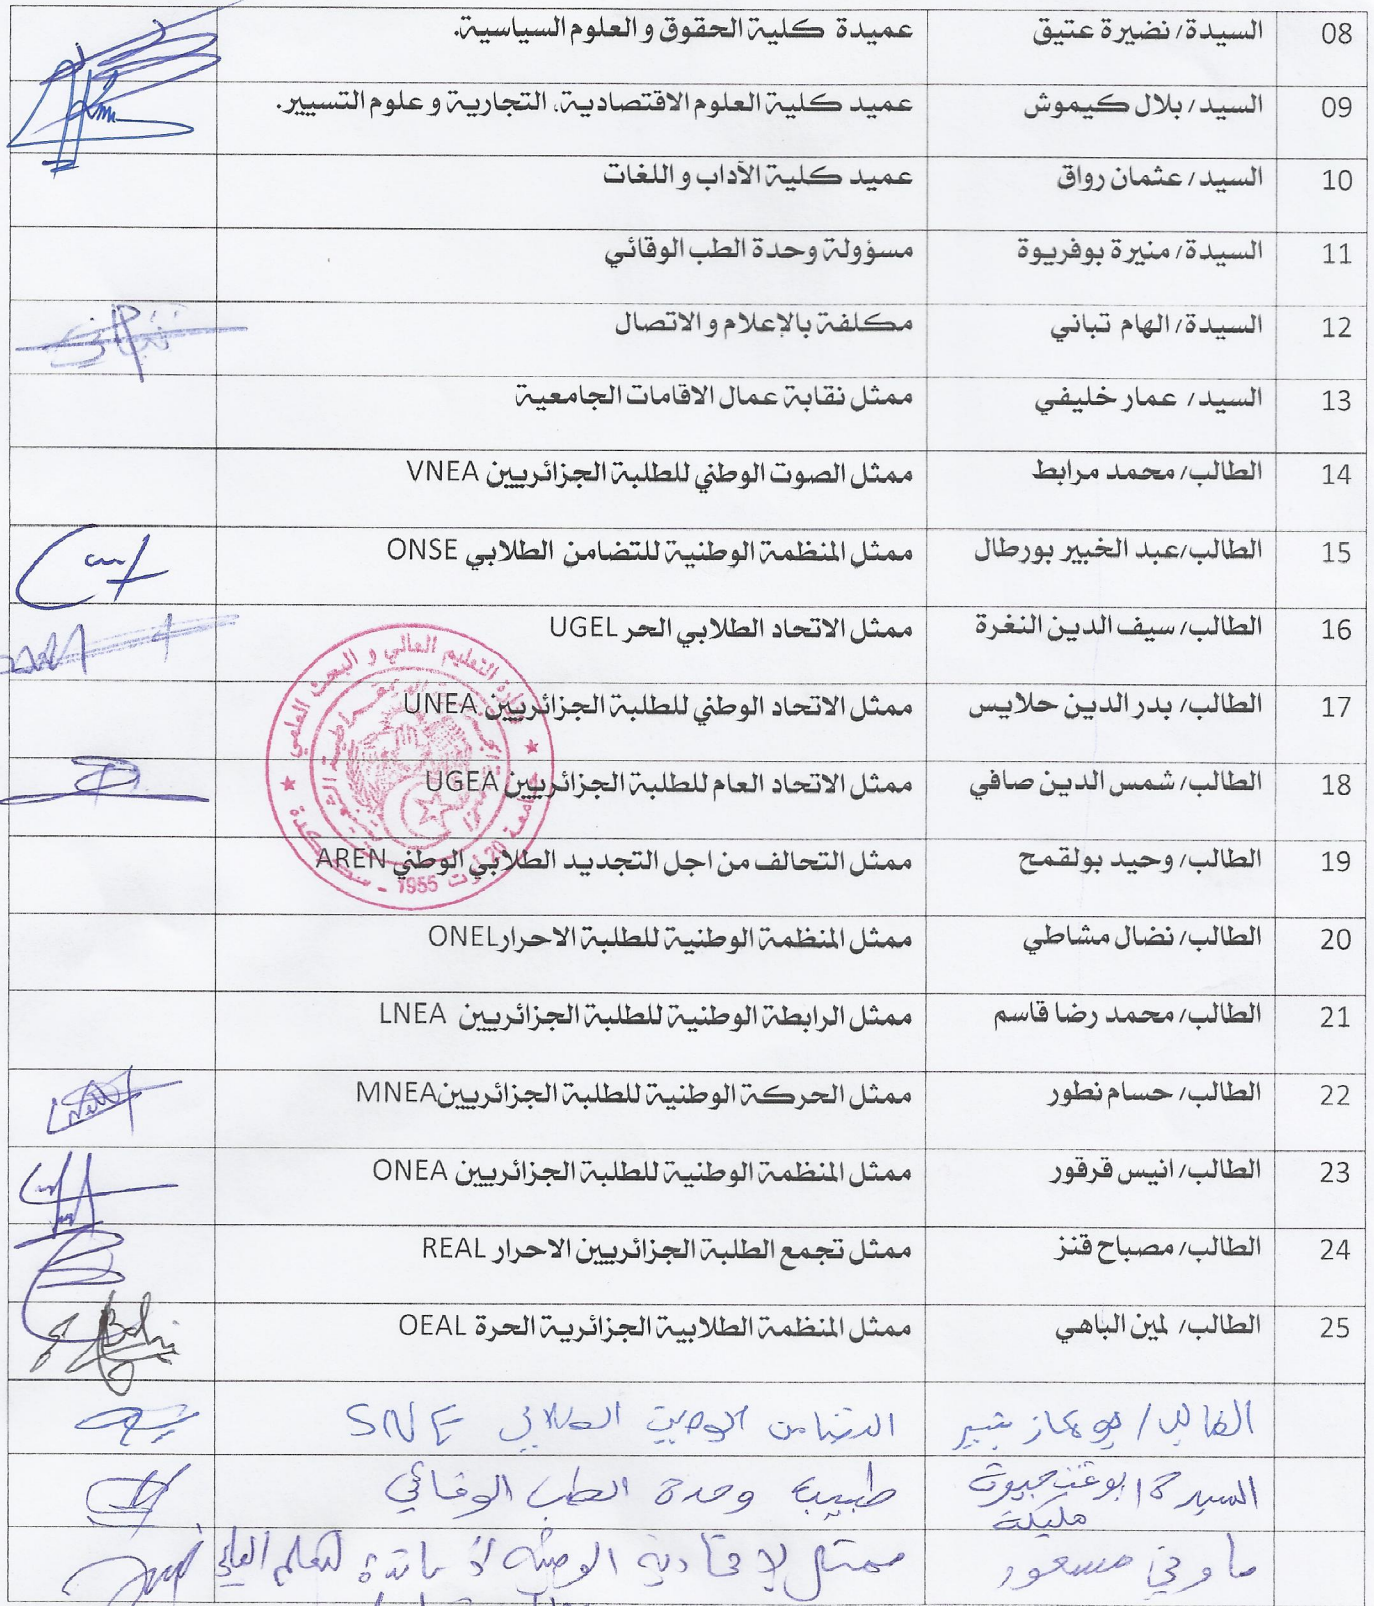 08 السيدة/ نضيرة عتيق عميدة كلية الحقوق و العلوم السياسية.
09 السيد/ بلال كيموش عميد كلية العلوم الاقتصادية، التجارية و علوم التسيير.
10 السيد/ عثمان رواق عميد كلية الآداب و اللغات
11 السيدة/ منيرة بوفريوة مسؤولة وحدة الطب الوقائي
12 السيدة/ الهام تباني مكلفة بالإعلام و الاتصال
13 السيد/ عمار خليفي ممثل نقابة عمال الاقامات الجامعية
14 الطالب/ محمد مرابط ممثل الصوت الوطني للطلبة الجزائريين VNEA
15 الطالب/عبد الخبير بورطال ممثل المنظمة الوطنية للتضامن الطلابي ONSE
16 الطالب/ سيف الدين النغرة ممثل الاتحاد الطلابي الحر UGEL
17 الطالب/ بدر الدين حلايس ممثل الاتحاد الوطني للطلبة الجزائريين UNEA
18 الطالب/ شمس الدين صافي ممثل الاتحاد العام للطلبة الجزائريين UGEA
19 الطالب/ وحيد بولقمح ممثل التحالف من اجل التجديد الطلابي الوطني AREN
20 الطالب/ نضال مشاطي ممثل المنظمة الوطنية للطلبة الاحرارONEL
21 الطالب/ محمد رضا قاسم ممثل الرابطة الوطنية للطلبة الجزائريين LNEA
22 الطالب/ حسام نطور ممثل الحركة الوطنية للطلبة الجزائريينMNEA
23 الطالب/ انيس قرقور ممثل المنظمة الوطنية للطلبة الجزائريين ONEA
24 الطالب/ مصباح قنز ممثل تجمع الطلبة الجزائريين الاحرار REAL
25 الطالب/ لمين الباهي ممثل المنظمة الطلابية الجزائرية الحرة OEAL
الطالب/ التضامن الوطني الطلابي SNE
السيدة/ مليكة طبيبة وحدة الطب الوقائي
مسعود ممثل الوطنية
وزارة التعليم العالي و البحث العلمي
جامعة 20 اوت 1955 - سكيكدة